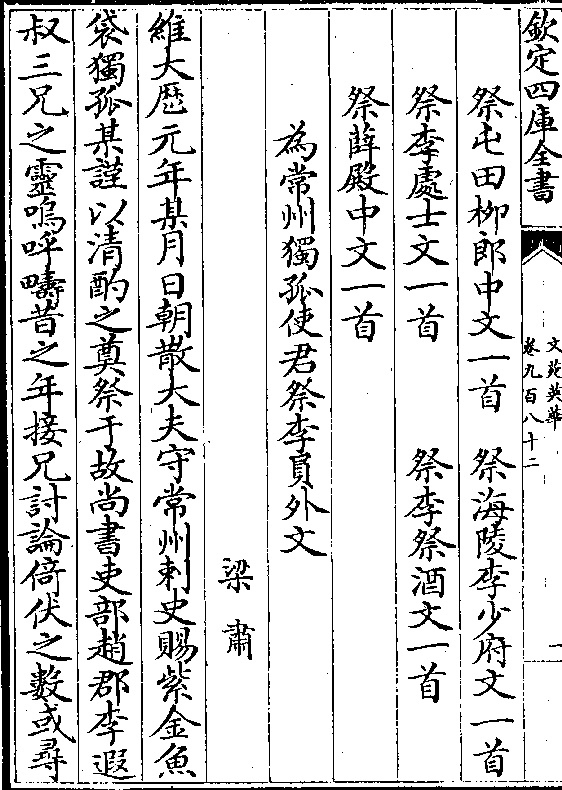 欽定四庫全書
文苑英華
卷九百八十二
一
祭屯田柳郎中文一首 祭海陵李少府文一首
祭李處士文一首 祭李祭酒文一首
祭薛殿中文一首
為常州獨孤使君祭李員外文
梁肅
維大厯元年某月日朝散大夫守常州刺史賜紫金魚
袋獨孤某謹以清酌之奠祭于故尚書吏部趙郡李遐
叔三兄之靈嗚呼疇昔之年接兄討論倚伏之數或尋